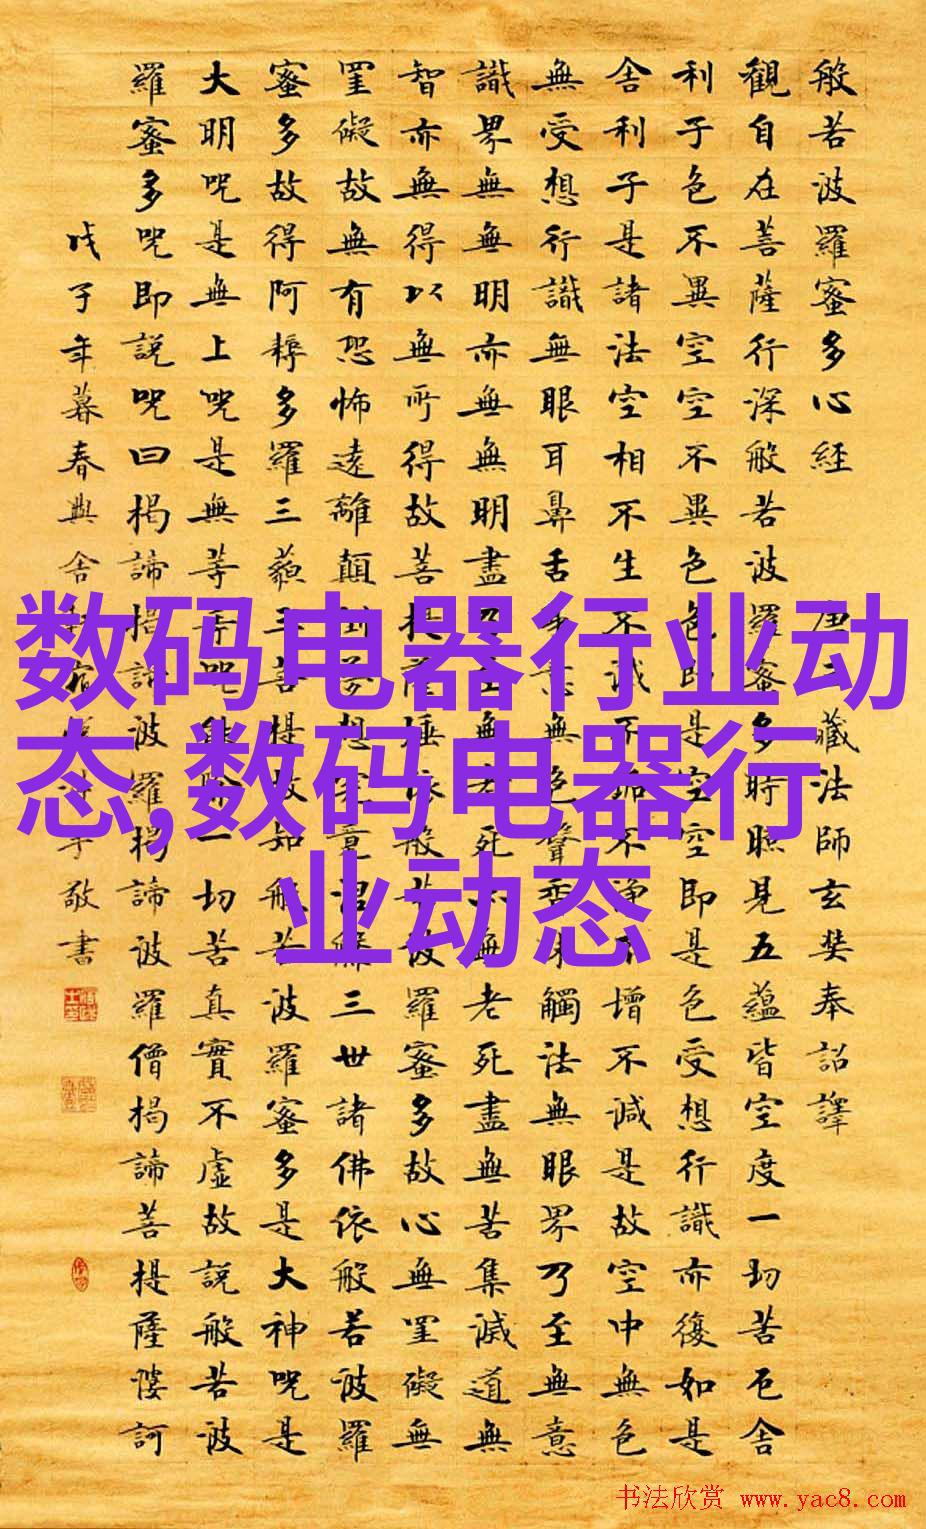 般若波羅蜜多心經 唐三藏法師玄奘奉詔譯
觀自在菩薩行深般若波羅蜜多時照見五蘊皆空度一切苦厄舍
利子色不異空空不異色色即是空空即是色受想行識亦復如是
舍利子是諸法空相不生不滅不垢不淨不增不減是故空中無色
無受想行識無眼耳鼻舌身意無色聲香味觸法無眼界乃至無意
識界無無明亦無無明盡乃至無老死亦無老死盡無苦集滅道無
智亦無得以無所得故菩提薩埵依般若波羅蜜多故心無罣礙無
罣礙故無有恐怖遠離顛倒夢想究竟涅槃三世諸佛依般若波羅
蜜多故得阿耨多羅三藐三菩提故知般若波羅蜜多是大神咒是
大明咒是無上咒是無等等咒能除一切苦真實不虛故說般若波
羅蜜多咒即說咒曰揭諦揭諦波羅揭諦波羅僧揭諦菩提薩婆訶
戊子年暮春 舍 敬書
数码电器行业动
态,数码电器行
业动态
书法欣赏 www.yac8.com